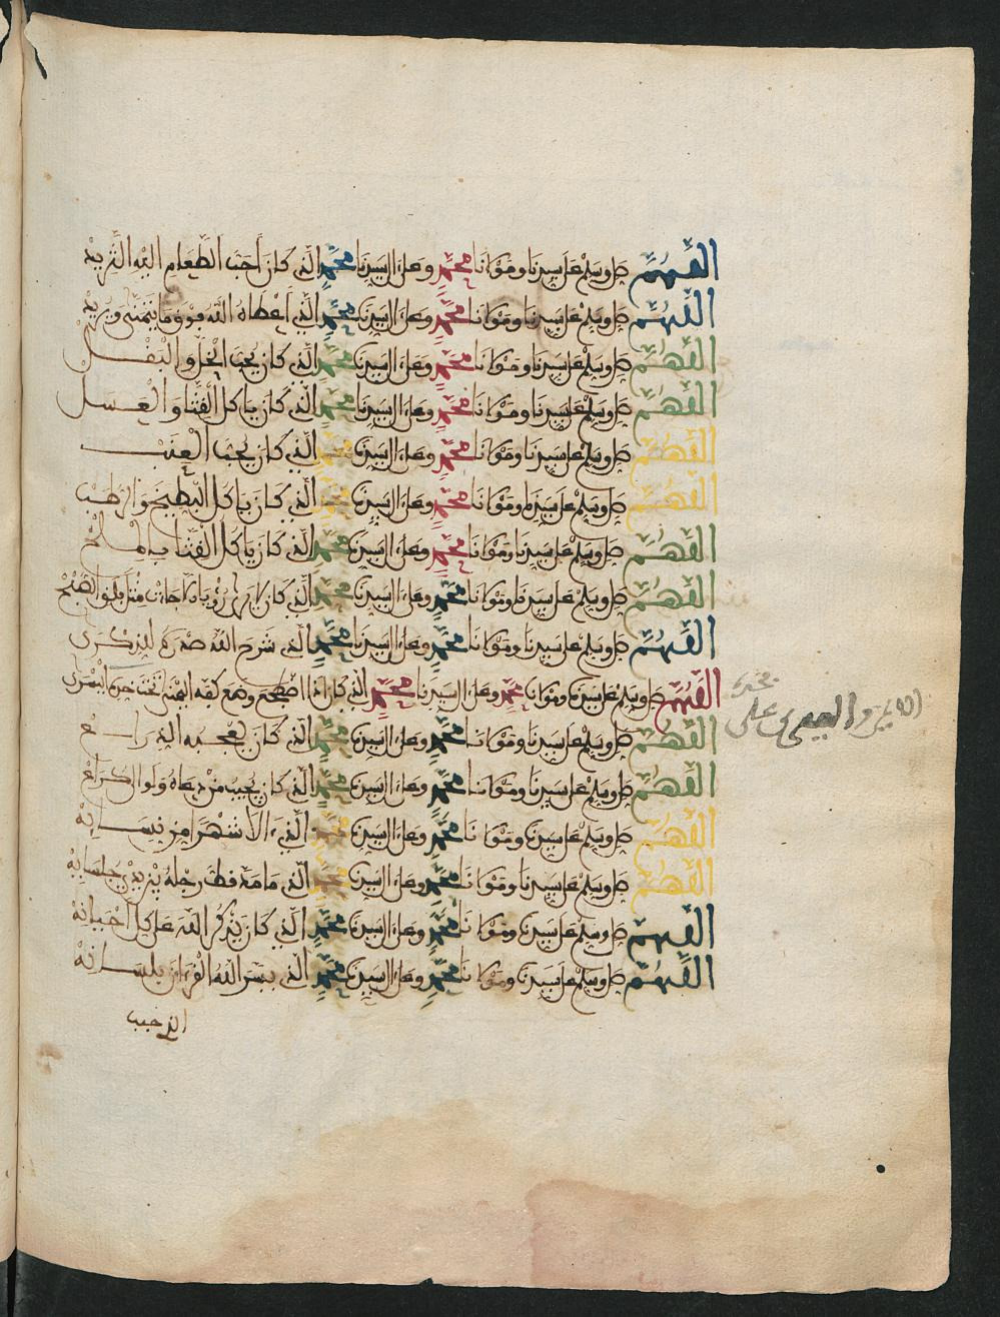 اللهم صل وسلم على سيدنا ومولانا محمد وعلى آل سيدنا محمد الذي كان أحب الطعام إليه الثريد
اللهم صل وسلم على سيدنا ومولانا محمد وعلى آل سيدنا محمد الذي أعطاه الله فوق ما يتمنى ويريد
اللهم صل وسلم على سيدنا ومولانا محمد وعلى آل سيدنا محمد الذي كان يحب الخل والبقل
اللهم صل وسلم على سيدنا ومولانا محمد وعلى آل سيدنا محمد الذي كان ياكل القثا والعسل
اللهم صل وسلم على سيدنا ومولانا محمد وعلى آل سيدنا محمد الذي كان يحب العنب
اللهم صل وسلم على سيدنا ومولانا محمد وعلى آل سيدنا محمد الذي كان ياكل البطيخ والرطب
اللهم صل وسلم على سيدنا ومولانا محمد وعلى آل سيدنا محمد الذي كان ياكل القثا بالملح
اللهم صل وسلم على سيدنا ومولانا محمد وعلى آل سيدنا محمد الذي كان لا يرى رؤيا الا جاءت مثل فلق الصبح
اللهم صل وسلم على سيدنا ومولانا محمد وعلى آل سيدنا محمد الذي شرح الله صدره للذكرى
اللهم صل وسلم على سيدنا ومولانا محمد وعلى آل سيدنا محمد الذي كان اذا اضطجع وضع كفه اليمنى تحت خده اليسرى
على
اللهم صل وسلم على سيدنا ومولانا محمد وعلى آل سيدنا محمد الذي كان يعجبه الذراع
اللهم صل وسلم على سيدنا ومولانا محمد وعلى آل سيدنا محمد الذي كان يجيب من دعاه ولو الى كراع
اللهم صل وسلم على سيدنا ومولانا محمد وعلى آل سيدنا محمد الذي ءالى شهرا من نسائه
اللهم صل وسلم على سيدنا ومولانا محمد وعلى آل سيدنا محمد الذي ما مد قط رجله بين يدي جلسائه
اللهم صل وسلم على سيدنا ومولانا محمد وعلى آل سيدنا محمد الذي كان يذكر الله على كل أحيانه
اللهم صل وسلم على سيدنا ومولانا محمد وعلى آل سيدنا محمد الذي يسر الله القرءان بلسانه
الذي حبب